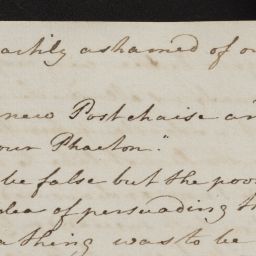 artily ashamed of o
new Post chaise an
our Phaeton."
be false but the poo
dea of persuading th
a thing was to be